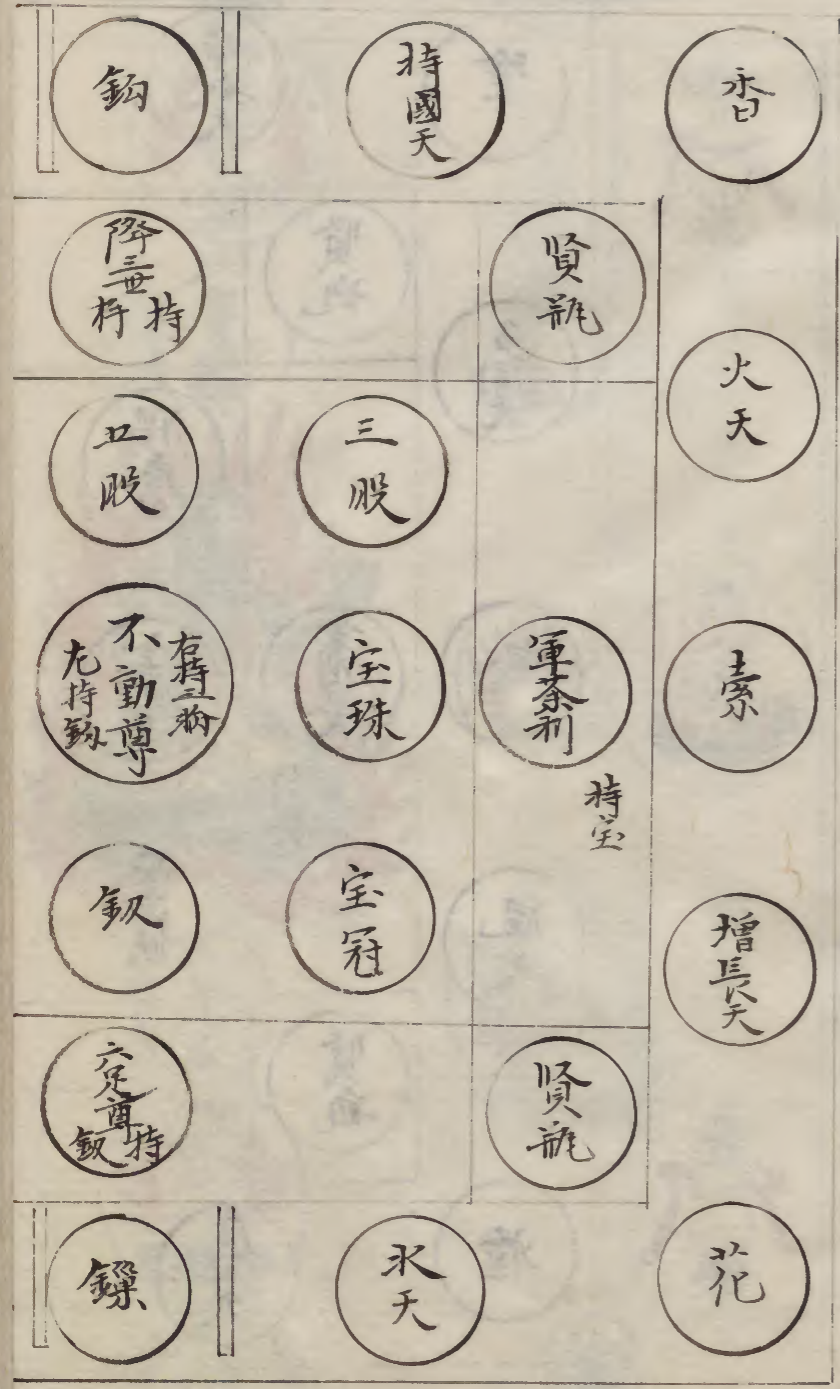 香
火天
索
增長天
花
持國天
賢瓶
軍荼利
持宝
賢瓶
三股
宝珠
宝冠
水天
鈎
降三世
持杵
五股
不動尊
右持三
左持鈎
釼
六足尊
持釼
鏁